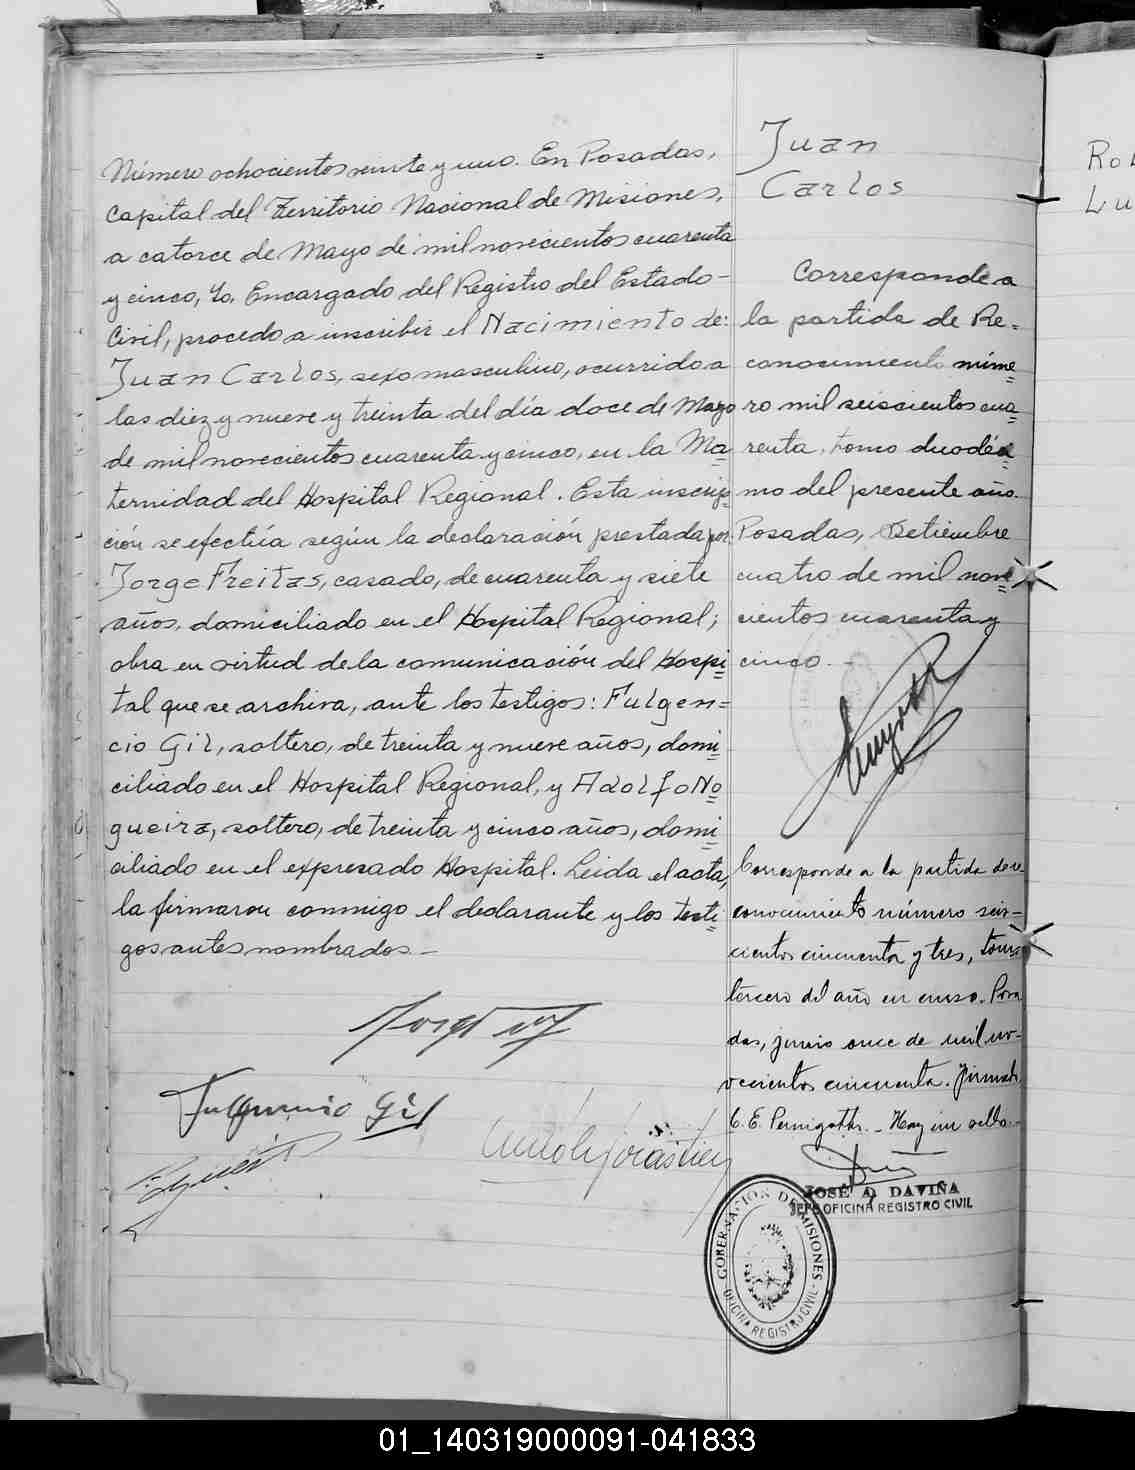 Número ochocientos veinte y uno. En Posadas,
Capital del Territorio Nacional de Misiones,
a catorce de Mayo de mil novecientos cuarenta
y cinco, Yo, Encargado del Registro del Estado-
Civil, procedo a inscribir el Nacimiento de:
Juan Carlos, sexo masculino, ocurrido a
las diez y nueve y treinta del día doce de Mayo
de mil novecientos cuarenta y cinco, en la Ma=
ternidad del Hospital Regional. Esta inscrip=
ción se efectúa según la declaración prestada por:
Jorge Freitas, casado, de cuarenta y siete
años, domiciliado en el Hospital Regional;
obra en virtud de la comunicación del Hospi=
tal que se archiva, ante los testigos: Fulgen=
cio Gil, soltero, de treinta y nueve años, domi=
ciliado en el Hospital Regional, y Adolfo No=
gueira, soltero, de treinta y cinco años, domi=
ciliado en el expresado Hospital. Leida el acta,
la firmaron conmigo el declarante y los testi=
gos antes nombrados.-
Fulgencio Gil
Juan
Carlos
Corresponde a
la partida de Re=
conocimiento núme=
ro mil seiscientos cua=
renta, tomo duodéci=
mo del presente año.
Posadas, Setiembre
cuatro de mil nove=
cientos cuarenta y
cinco.-
Corresponde a la partida de re
conocimiento número seis-
cientos cincuenta y tres, tomo
tercero del año en curso. Posa
das, junio once de mil no-
vecientos cincuenta. Firmado
C. E. Hay un sello.-
JOSÉ A. DAVIÑA
JEFE OFICINA REGISTRO CIVIL
GOBERNACION DE MISIONES
OFICINA REGISTRO CIVIL
Ro
Lu
01_140319000091-041833